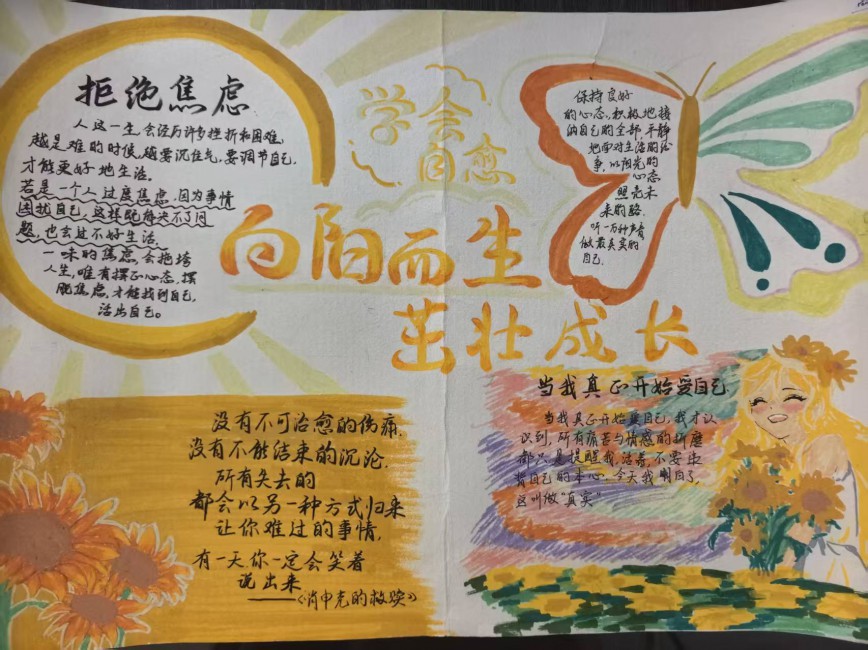 拒绝焦虑
人这一生,会经历许多挫折和困难,
越是难的时候,越要沉住气,要调节自己,
才能更好地生活。
若是一个人过度焦虑,因为事情
困扰自己,这样既解决不了问
题,也会过不好生活。
一味的焦虑,会拖垮
人生,唯有摆正心态,摆
脱焦虑,才能找到自己,
活出自己。
学会
自愈
向阳而生
茁壮成长
保持良好
的心态,积极地接
纳自己的全部,平静
地面对生活的纷
事,以阳光的
心态
照亮未
来的路,
听一万种声音
做最真实的
自己.
没有不可治愈的伤痛,
没有不能结束的沉沦,
所有失去的
都会以另一种方式归来
让你难过的事情,
有一天你一定会笑着
说出来
——《肖申克的救赎》
当我真正开始爱自己
当我真正开始爱自己,我才认
识到,所有痛苦与情感的折磨
都只是提醒我:活着,不要违
背自己的本心。今天我明白了,
这叫做“真实”